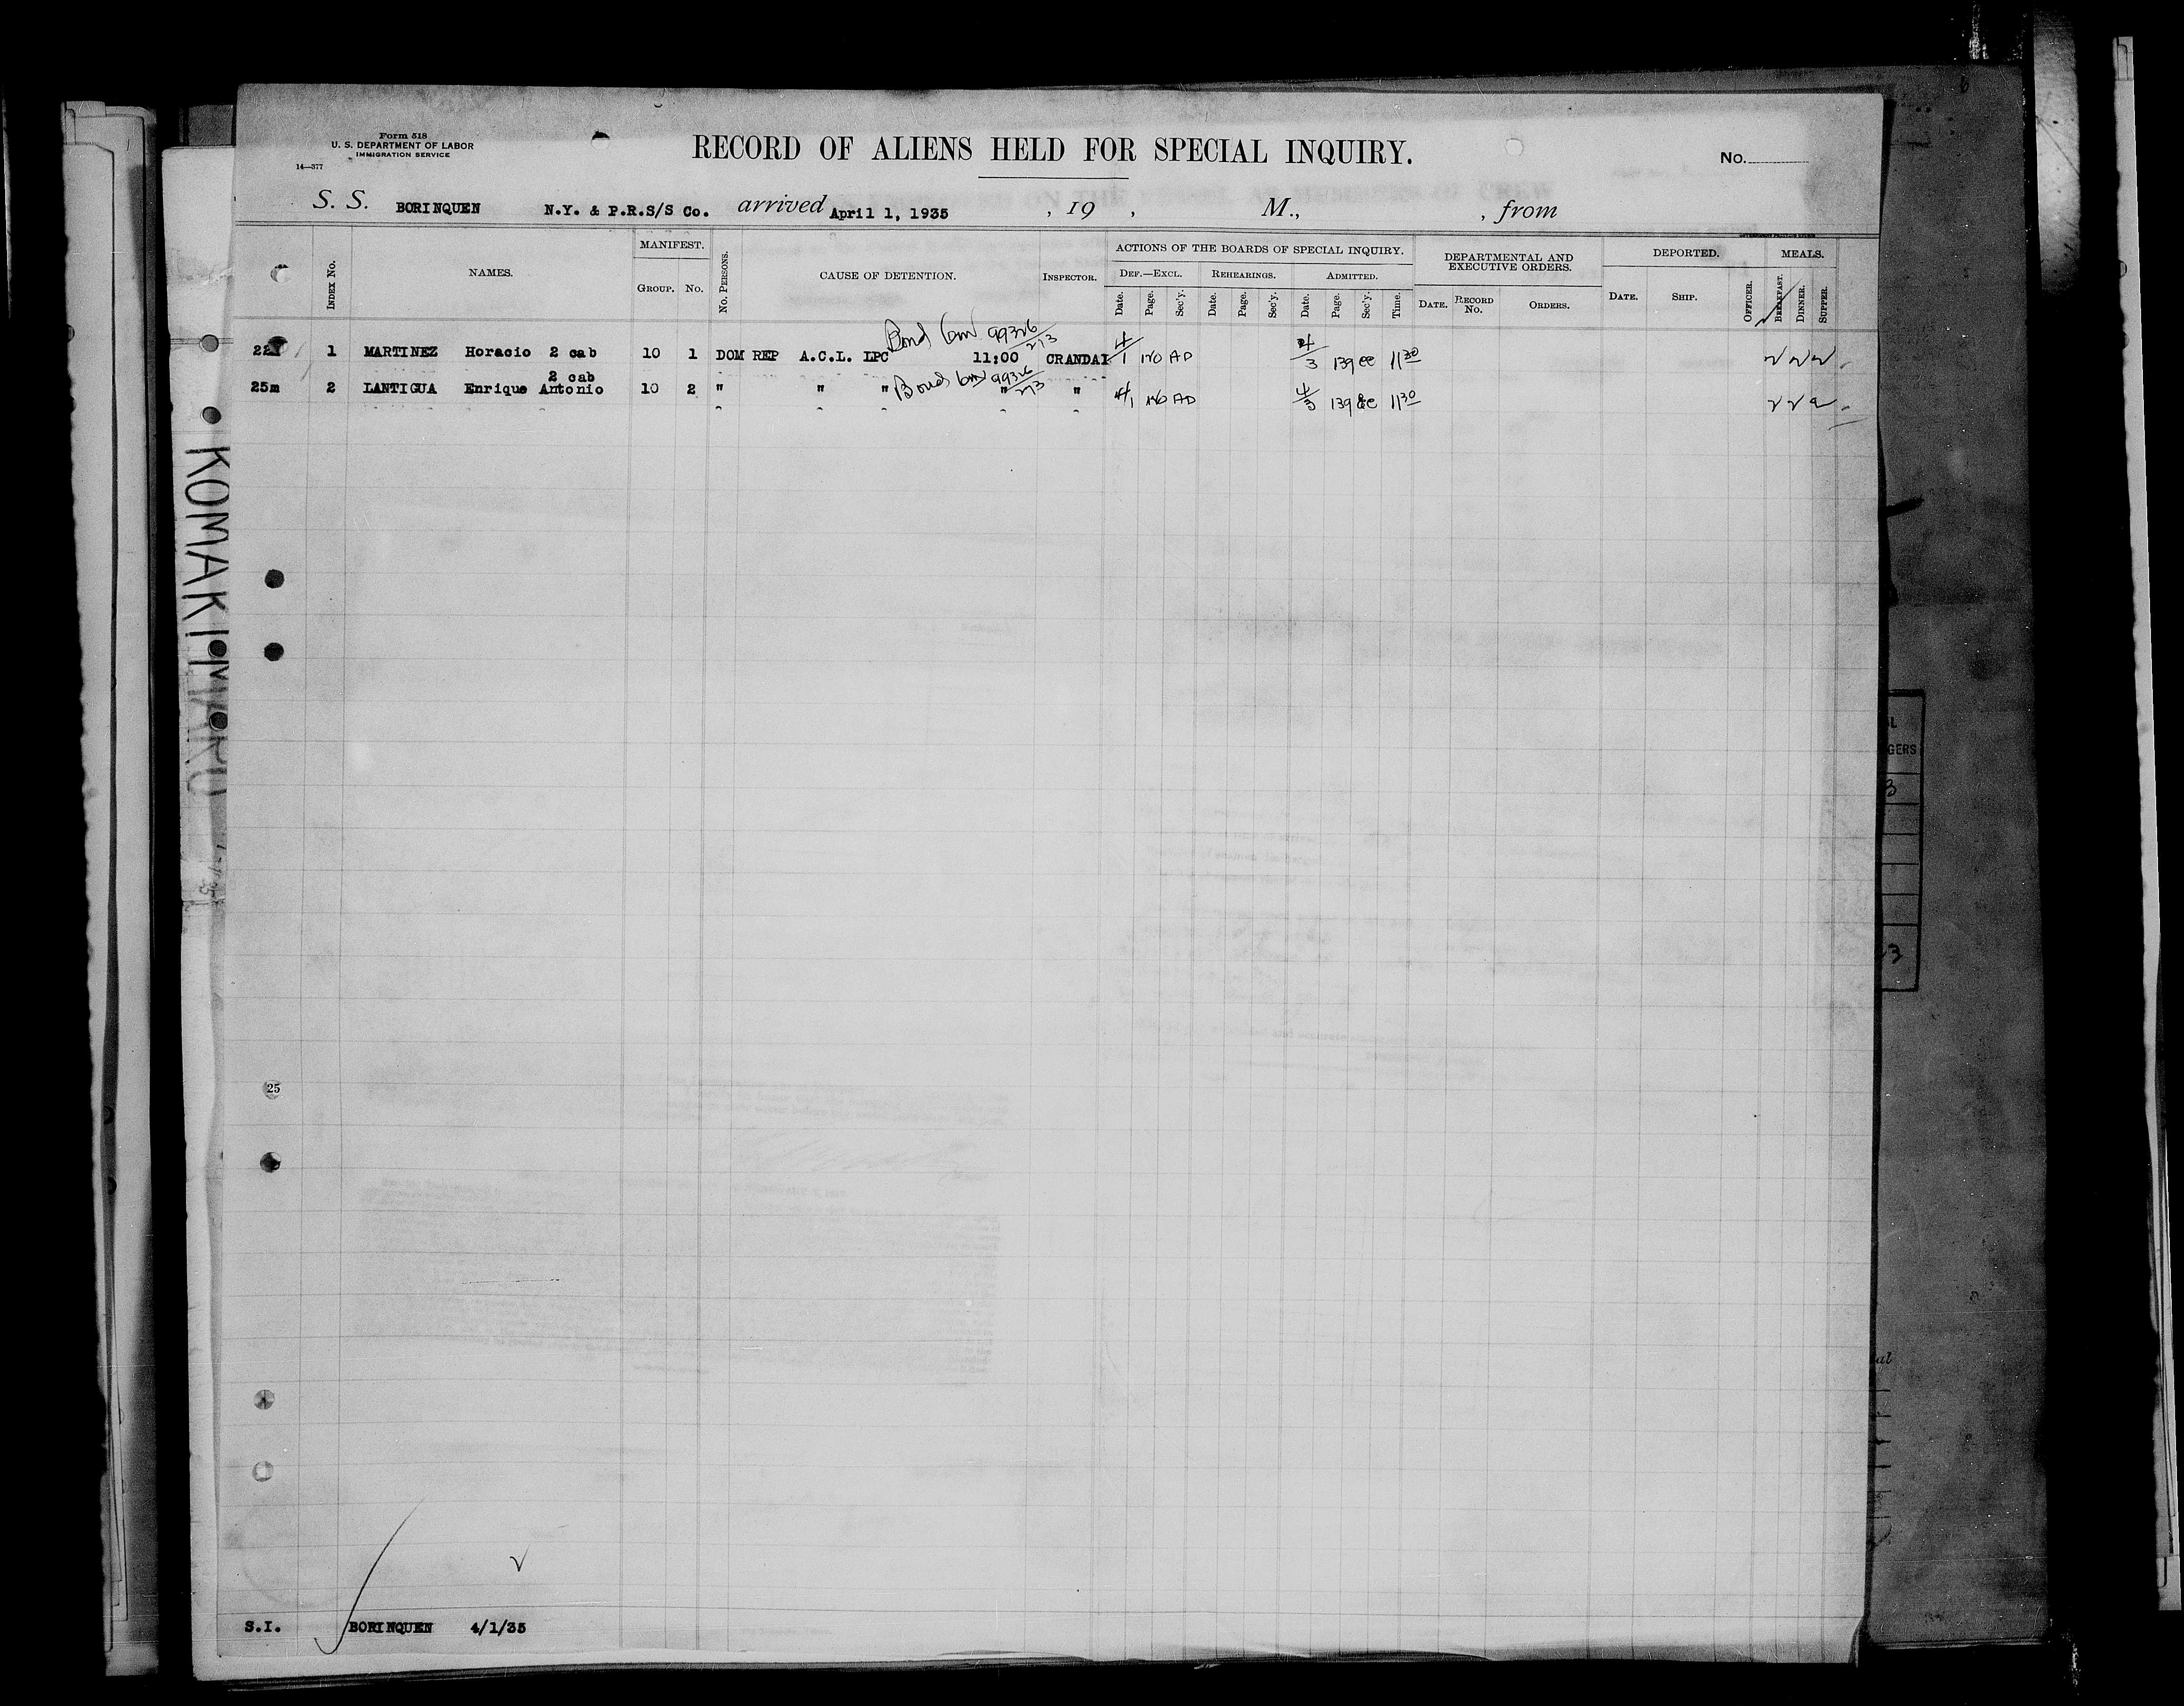 Form 518
U. S. DEPARTMENT OF LABOR
IMMIGRATION SERVICE
14—377
RECORD OF ALIENS HELD FOR SPECIAL INQUIRY.
No.
S. S. BORINQUEN N.Y. & P.R.S/S Co. arrived April 1, 1935 , 19 , M., , from
INDEX No. NAMES. MANIFEST. GROUP. No. No. PERSONS. CAUSE OF DETENTION. INSPECTOR. ACTIONS OF THE BOARDS OF SPECIAL INQUIRY. DEF.—EXCL. Date. Page. Sec'y. REHEARINGS. Date. Page. Sec'y. ADMITTED. Date. Page. Sec'y. Time. DEPARTMENTAL AND EXECUTIVE ORDERS. DATE. RECORD No. ORDERS. DEPORTED. DATE. SHIP. OFFICER. MEALS. BREAKFAST. DINNER. SUPPER.
Bond 99326/273
1 MARTINEZ Horacio 2 cab 10 1 DOM REP A.C.L. LPC 11:00 CRANDAL 4/1 AD 4/3 139 ee 11 30
2 cab
Bond 99326/273
25m 2 LANTIGUA Enrique Antonio 10 2 " " " " " 4/1 AD 4/3 139 ee 11 30
KOMAKI MARU
25
L
GERS
3
3
al
S.I. BORINQUEN 4/1/35